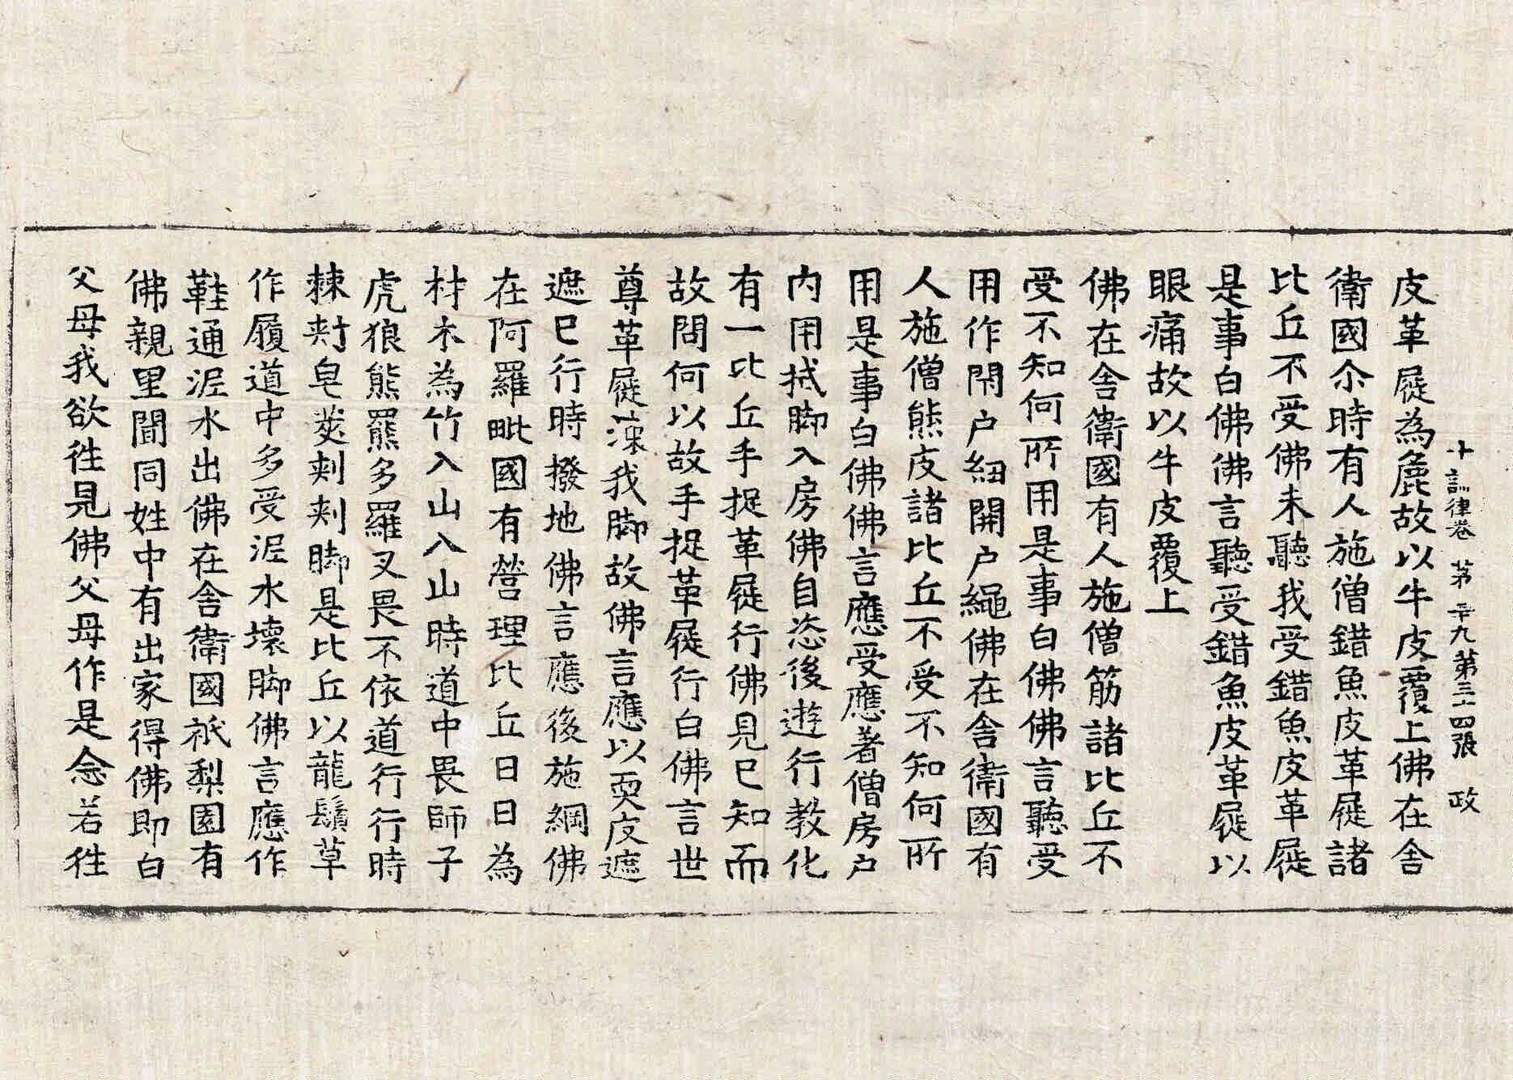 十誦律卷 第卒九第三十四張 政
皮革屣為麁故以牛皮覆上佛在舍
衛國尒時有人施僧錯魚皮革屣諸
比丘不受佛未聽我受錯魚皮革屣
是事白佛佛言聽受錯魚皮革屣以
眼痛故以牛皮覆上
佛在舍衛國有人施僧筋諸比丘不
受不知何所用是事白佛佛言聽受
用作閇户紐開户繩佛在舍衛國有
人施僧熊皮諸比丘不受不知何所
用是事白佛佛言應受應著僧房戶
內用拭脚入房佛自恣後遊行教化
有一比丘手捉革屣行佛見已知而
故問何以故手捉革屣行白佛言世
尊革屣深我脚故佛言應以耎皮遮
遮已行時撥地佛言應後施綱佛
在阿羅毗國有營理比丘日日為
材木為竹入山入山時道中畏師子
虎狼熊羆多羅叉畏不依道行行時
棘刾皂莢刾刾脚是比丘以龍鬚草
作履道中多受泥水壞脚佛言應作
鞋通泥水出佛在舍衛國祇梨園有
佛親里間同姓中有出家得佛即白
父母我欲徃見佛父母作是念若徃